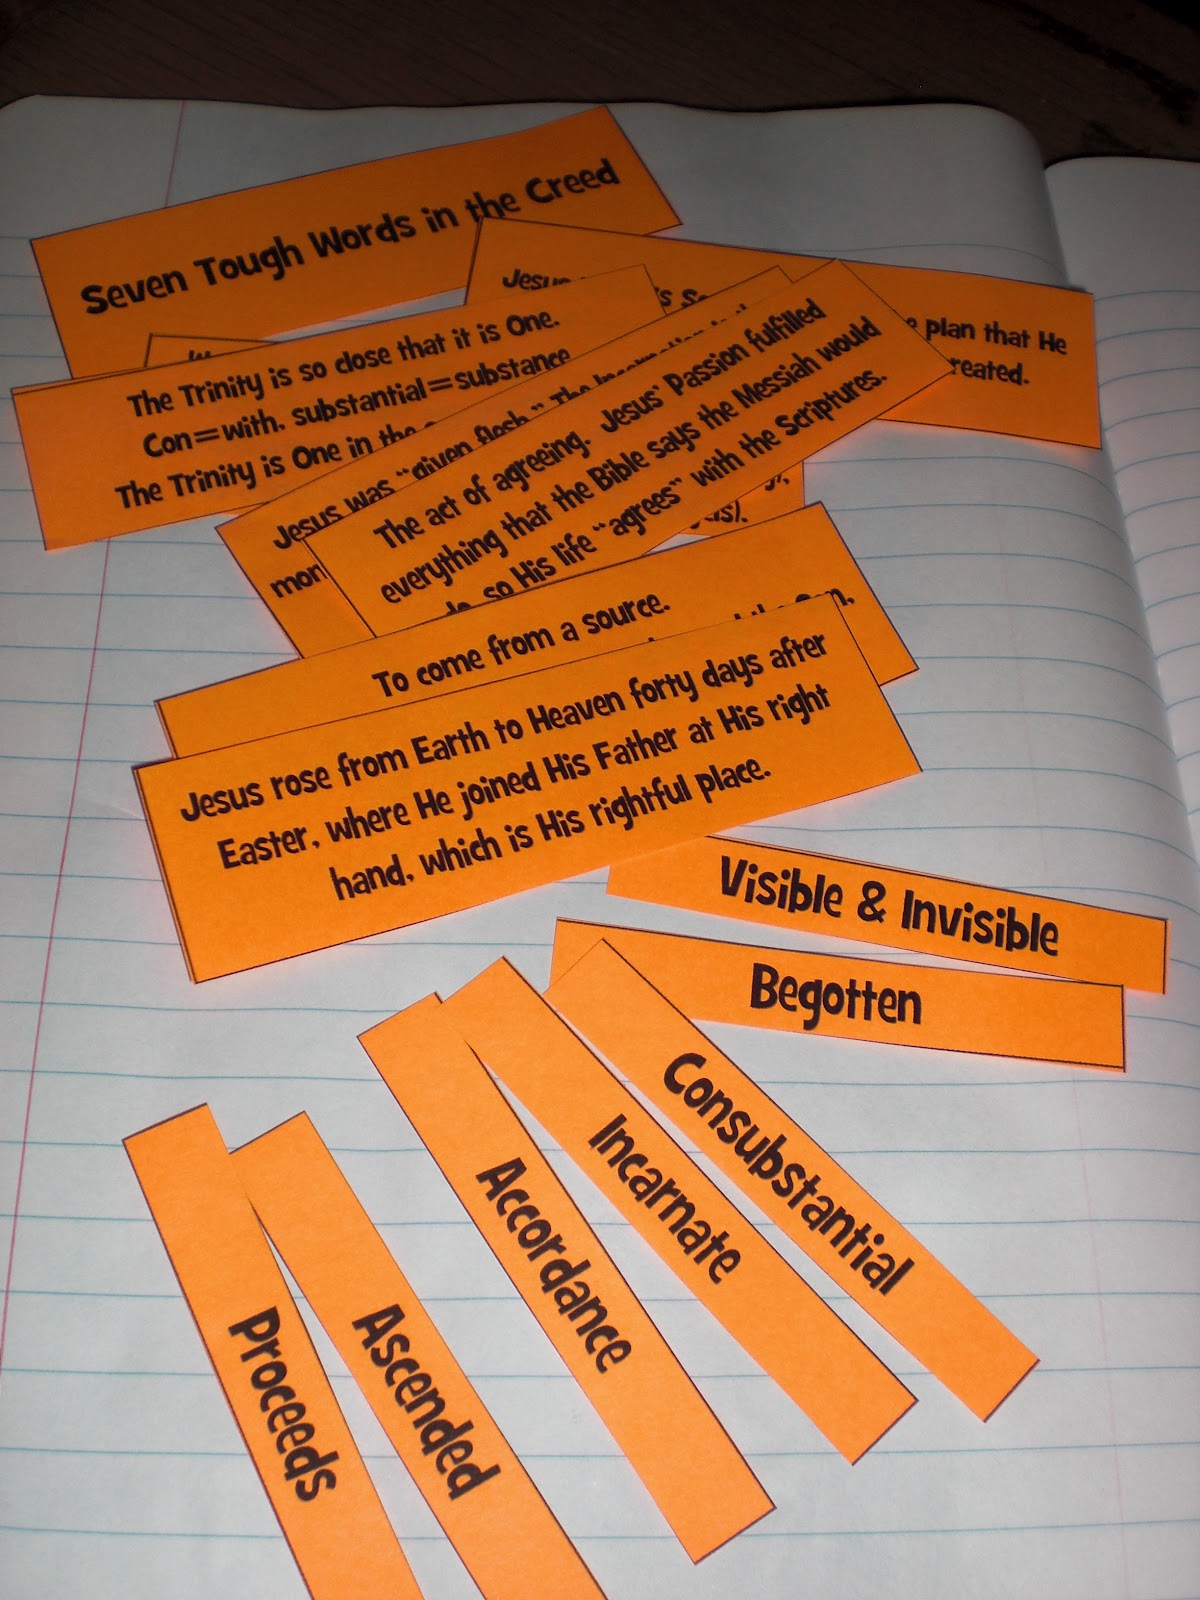 Seven Tough Words in the Creed
Jesus
plan that He
created.
The Trinity is so close that it is One.
Con=with, substantial=substance
The Trinity is One in the
Jesus was "given flesh." The Incarnation
The act of agreeing. Jesus' Passion fulfilled
everything that the Bible says the Messiah would
so His life "agrees" with the Scriptures.
To come from a source.
Jesus rose from Earth to Heaven forty days after
Easter, where He joined His Father at His right
hand, which is His rightful place.
Visible & Invisible
Begotten
Consubstantial
Incarnate
Accordance
Ascended
Proceeds